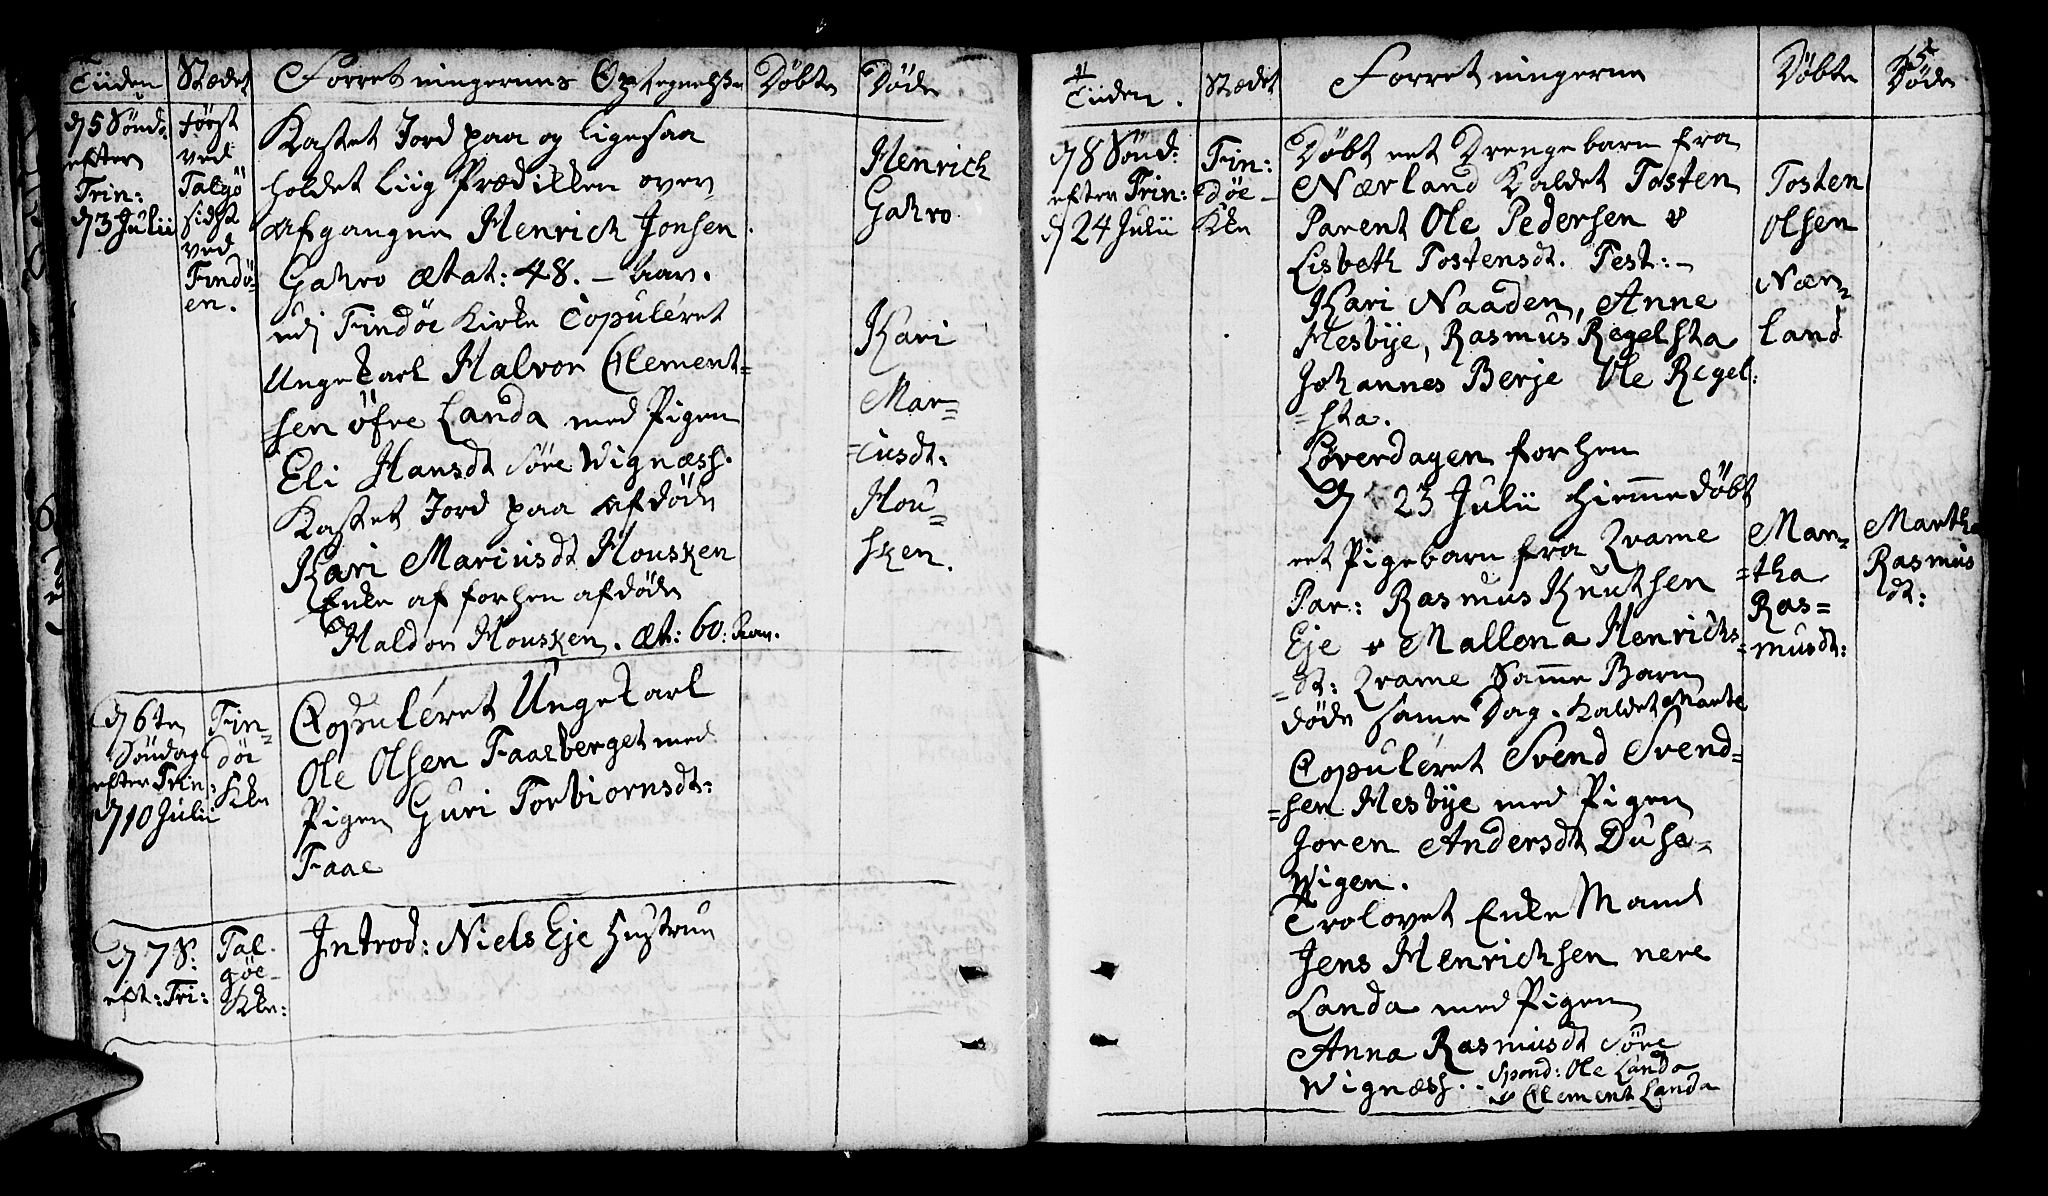 Tiiden Stædet Forretningernes Optegnelsse Döbte Döde
d 5 Sönd: efter Trin: d 3 Julii
först ved Talgö sidst ved Findöen.
Kastet Jord paa og ligesaa
holdet Liig Prædikken over
afgangne Henrich Jonsen
Gahro ætat: 48. – aar.
udj Findöe Kirke Copuléret
Ungekarl Halvor Clement=
=sen öfre Landa med Pigen
Eli Hansdt Söre Wignæss.
Kastet Jord paa afdöde
Kari Mariusdt Housken
Enke af forhen afdöde
Haldor Housken. æt: 60: aar.
Henrich
Gahro
Kari
Mar=
=iusdt:
Hou=
sken.
d 6te
Söndag
efter Trin:
d 10 Julii
Fin=
döe
Kke
Copuléret Ungekarl
Ole Olsen Faasberget med
Pigen Guri Torbiornsdt:
Faae
d 7 S:
eft: Tri:
Tal=
göe
Kke:
Introd: Niels Eje Hustrue
Tiiden. Stædet Forretningerne Döbte Döde
15
d 8 Sönd:
efter Trin:
d 24 Julii
Fin:
döe
Kke
Döbt eet Drengebarn fra
Nærland Kaldet Tosten
Parent Ole Pedersen &
Lisbeth Tostensdt. Test: –
Kari Naaden, Anne
Hesbÿe, Rasmus Regelsta
Johannes Berje Ole Regel:
=sta.
Löverdagen forhen
d 23 Julii hiemedöbt
eet Pigebarn fra Qvame
Par: Rasmus Knutsen
Eje & Mallena Henrichs=
=dt: Qvame Same Barn
döde same Dag. Kaldet Marte
Copuléret Svend Svend=
=sen Hesbÿe med Pigen
Joren Andersdt Duse=
Wigen.
Trolovet Enke Mand
Jens Henrichsen nere
Landa med Pigen
Anna Rasmusdt Söre
Wignæss. Spond: Ole Landa
& Clement Landa
Tosten
Olsen
Nær=
land
Mar=
=tha
Ras=
musdt:
Martha
Rasmus
dt: